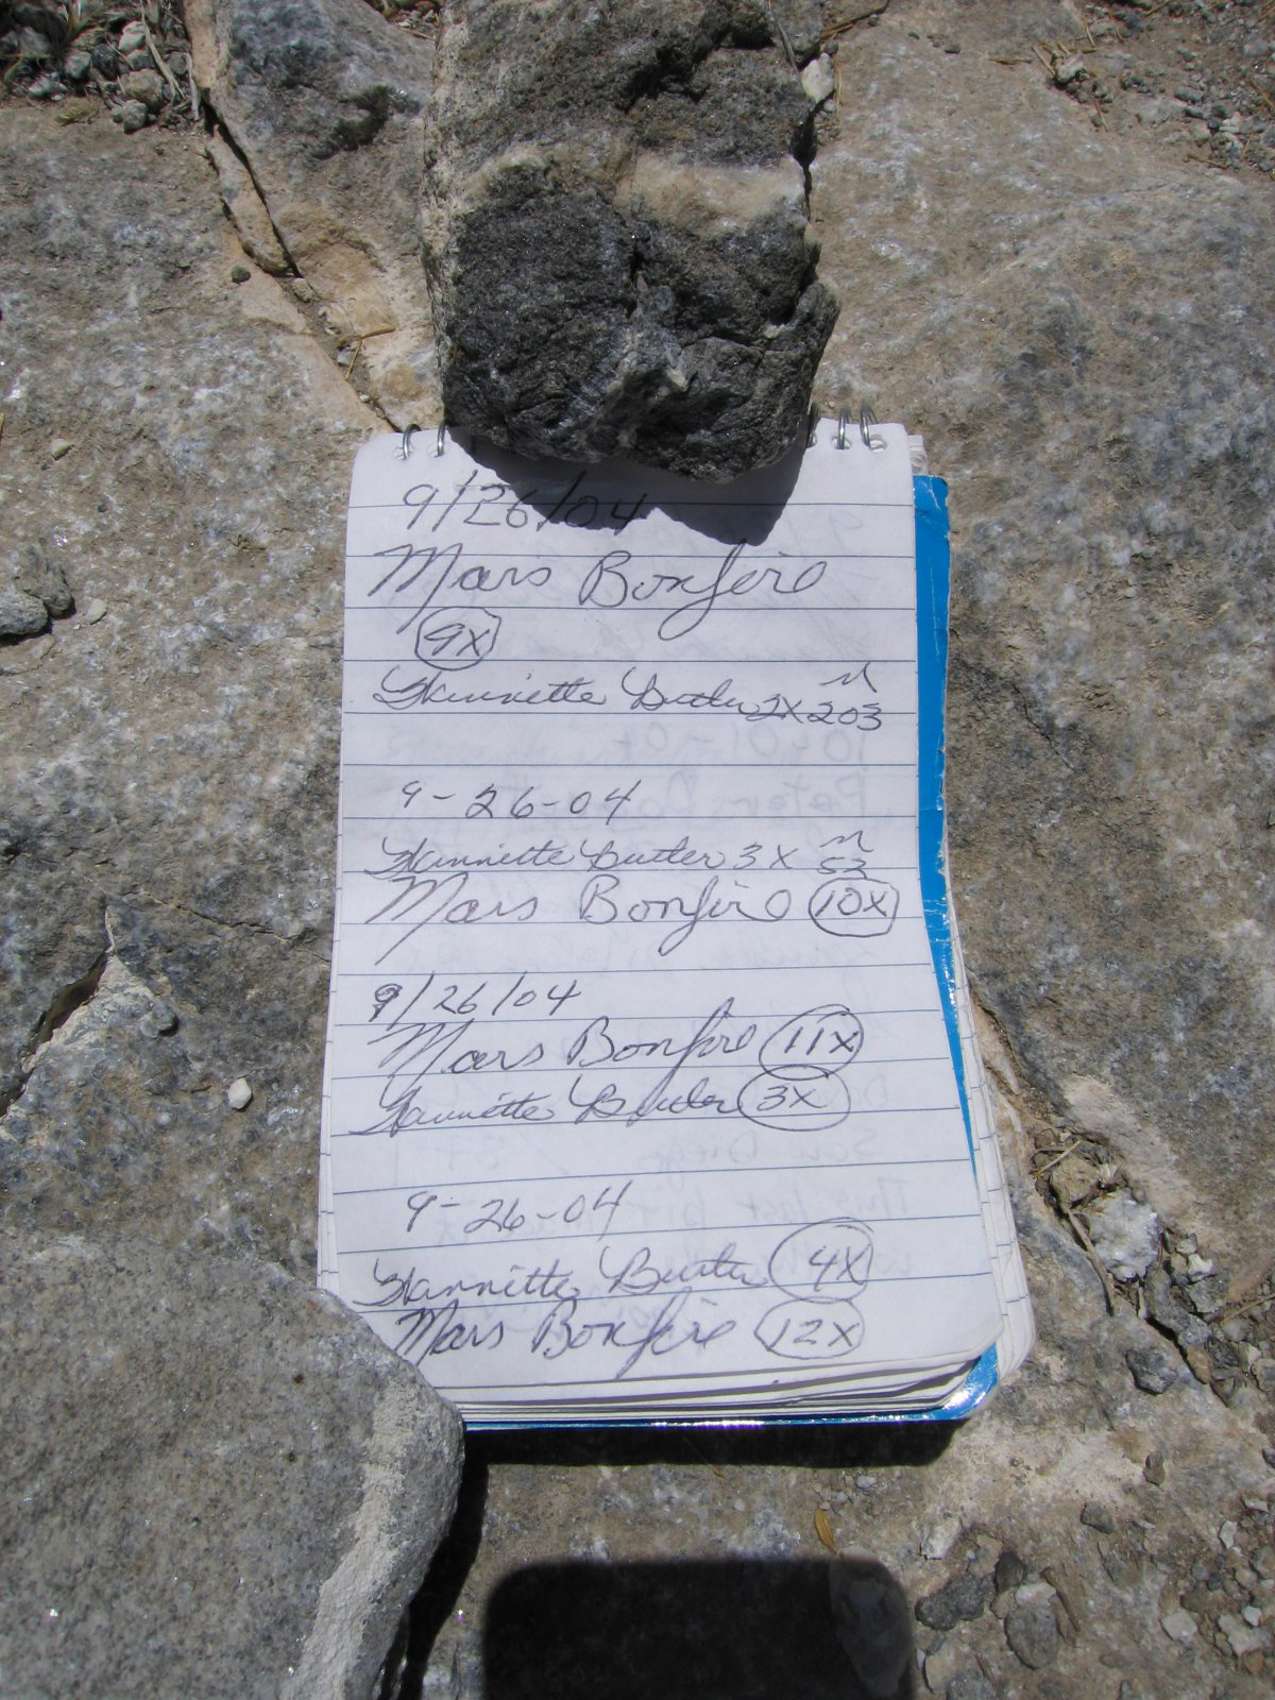 9/26/04
Mars Bonfire
9X
Butler 2X 203
9-26-04
Butler 3X
Mars Bonfire 10X
9/26/04
Mars Bonfire 11X
Butler 3X
9-26-04
Butler 4X
Mars Bonfire 12X